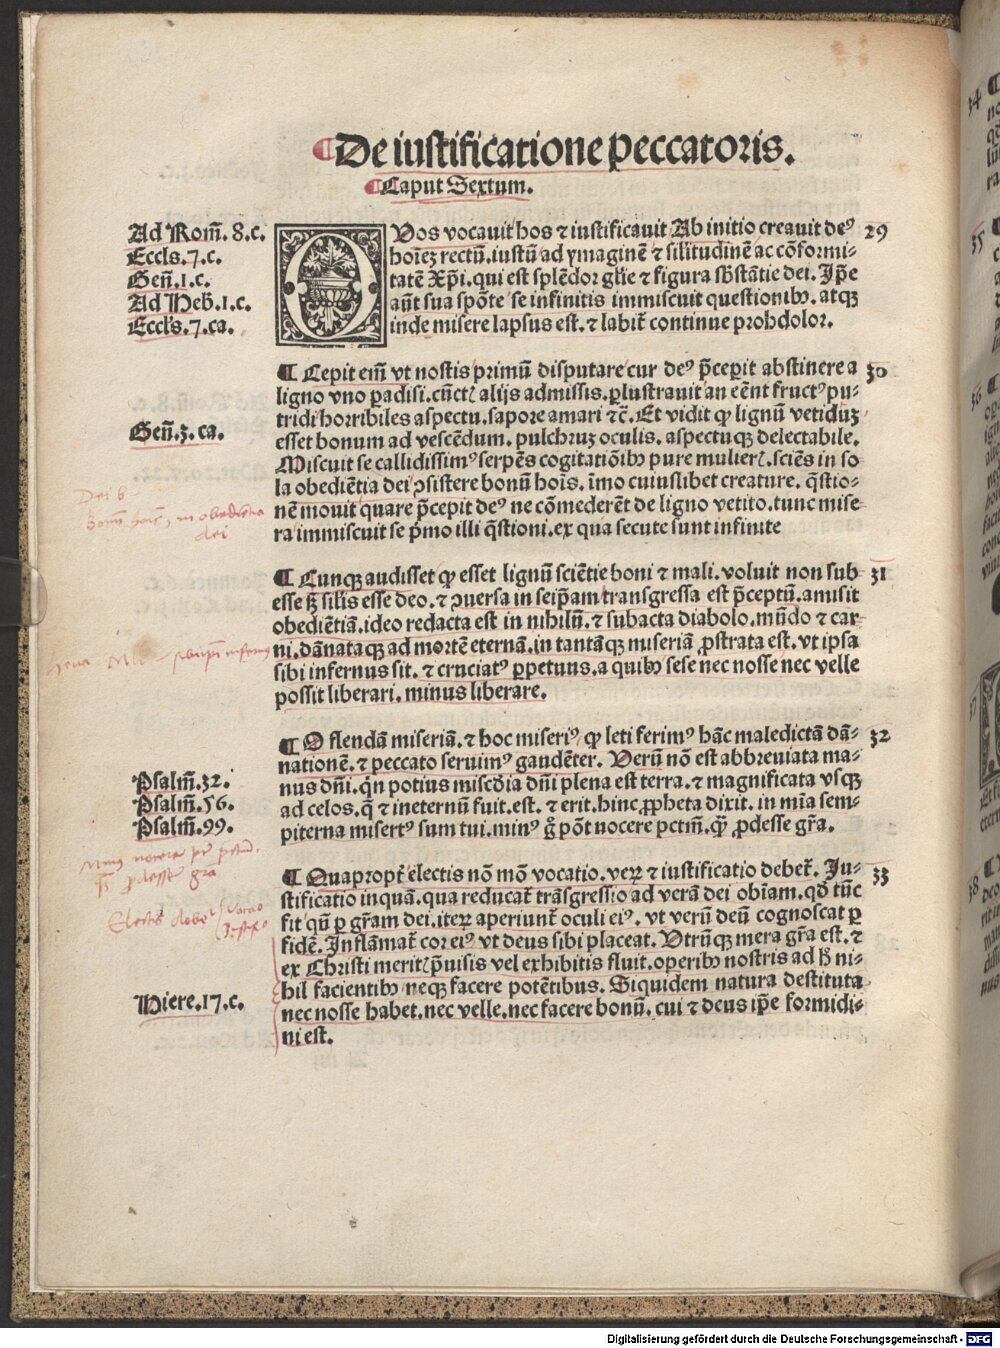 ¶ De iustificatione peccatoris.
¶ Caput Sextum.
Ad Rom̄. 8. c.
Eccls. 7. c.
Gen̄. 1. c.
Ad Heb̄. 1. c.
Eccl's. 7. ca.
QVos vocauit hos ⁊ iustificauit Ab initio creauit deꝰ 29
hoīeꝫ rectū. iustū ad ymaginē ⁊ silitudinē ac cōformi⸗
tatē Xp̄i. qui est splēdor gl'ie ⁊ figura sb̄stātie dei. Ip̄e
aūt sua spōte se infinitis immiscuit questionibꝰ. atqꝫ
inde misere lapsus est. ⁊ labit̄ continue prohdolor.
¶ Cepit em̄ vt nostis primū disputare cur deꝰ p̄cepit abstinere a 30
ligno vno ꝑadisi. cūctꝭ alijs admissis. ꝑlustrauit an eēnt fructꝰ pu⸗
tridi horribiles aspectu. sapore amari ⁊c̄. Et vidit ꝙ lignū vetiduꝫ
esset bonum ad vescēdum. pulchruꝫ oculis. aspectuqꝫ delectabile.
Gen̄. 3. ca.
Miscuit se callidissimꝰ serpēs cogitatiōibꝰ pure mulierꝭ. sciēs in so
la obediētia dei ꝯsistere bonū hoīs. īmo cuiuslibet creature. q̄stio⸗
nē mouit quare p̄cepit deꝰ ne cōmederēt de ligno vetito. tunc mise⸗
ra immiscuit se p̄mo illi q̄stioni. ex qua secute sunt infinite
bonū hoīs, in obediētia
dei
¶ Cunqꝫ audisset ꝙ esset lignū sciētie boni ⁊ mali. voluit non sub 31
esse sꝫ silis esse deo. ⁊ ꝯuersa in seip̄am transgressa est p̄ceptū. amisit
obediētiā. ideo redacta est in nihilū. ⁊ subacta diabolo. mūdo ⁊ car⸗
ni. dānataqꝫ ad mortē eternā. in tantāqꝫ miseriā ꝓstrata est. vt ipsa
sibi infernus sit. ⁊ cruciatꝰ ꝑpetuus. a quibꝰ sese nec nosse nec velle
possit liberari. minus liberare.
¶ O flendā miseriā. ⁊ hoc miseriꝰ ꝙ leti ferimꝰ hāc maledictā dā⸗ 32
nationē. ⁊ peccato seruimꝰ gaudēter. Verū nō est abbreuiata ma⸗
nus dn̄i. q̄n potius miscd̄ia dn̄i plena est terra. ⁊ magnificata vsqꝫ
ad celos. q̄ ⁊ ineternū fuit. est. ⁊ erit. hinc ꝓpheta dixit. in mīa sem⸗
piterna misertꝰ sum tui. minꝰ g̊ pōt nocere pctm̄. q̄ꝫ ꝓdesse gr̄a.
Psalm̄. 32.
Psalm̄. 56.
Psalm̄. 99.
Minus nocere
ꝓdesse gr̄a
¶ Quapropt̄ electis nō mō vocatio. veꝝ ⁊ iustificatio debet̄. Ju⸗ 33
stificatio inquā. qua reducat̄ trāsgressio ad verā dei obīam. qd̄ tūc
fit qū ꝑ gr̄am dei. iteꝝ aperiunt̄ oculi eiꝰ. vt verū deū cognoscat ꝑ
fidē. Inflāmat̄ cor eiꝰ vt deus sibi placeat. Vtrūqꝫ mera gr̄a est. ⁊
ex Christi meritꝭ p̄uisis vel exhibitis fluit. operibꝰ nostris ad h̄ ni⸗
hil facientibꝰ neqꝫ facere potētibus. Siquidem natura destituta
nec nosse habet. nec velle. nec facere bonū. cui ⁊ deus ip̄e formidi⸗
ni est.
Electis
Hiere. 17. c.
Digitalisierung gefördert durch die Deutsche Forschungsgemeinschaft - DFG